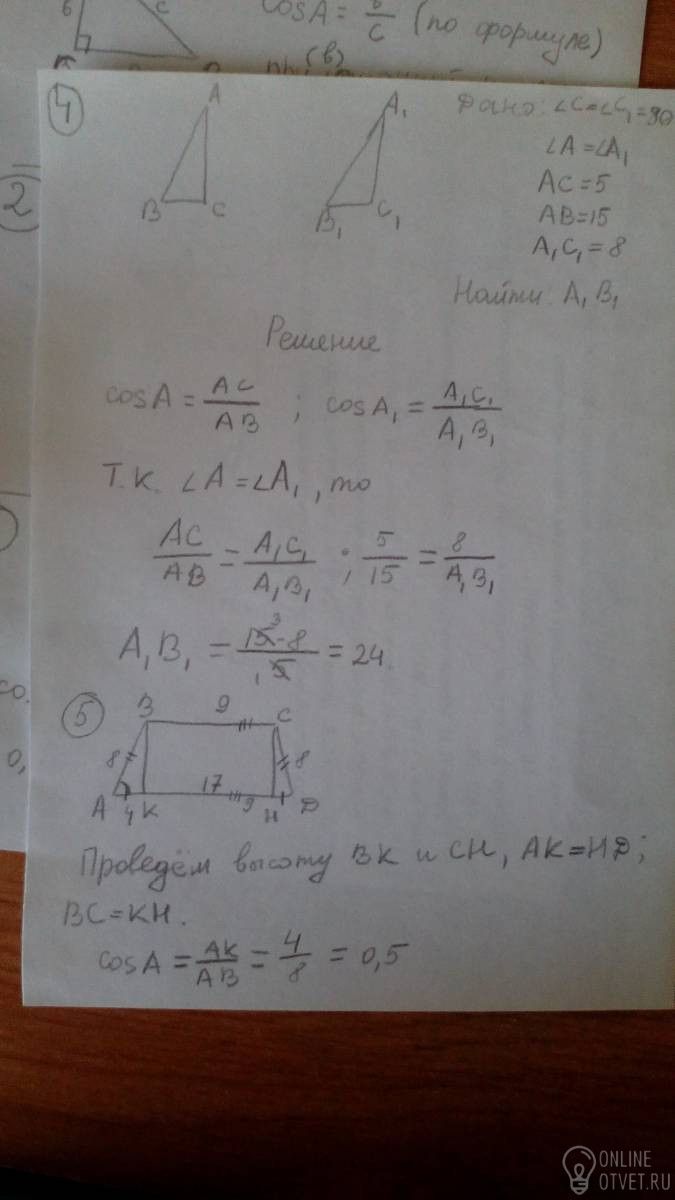 б
c
cosA = в/c (по формуле)
(в)
4
A
B C
A₁
B₁ C₁
Дано: ∠C=∠C₁=90
∠A=∠A₁
AC=5
AB=15
A₁C₁=8
Найти: A₁B₁
2
Решение
cosA = AC/AB ; cosA₁ = A₁C₁/A₁B₁
Т.К. ∠A=∠A₁, то
AC/AB = A₁C₁/A₁B₁ ; 5/15 = 8/A₁B₁
A₁B₁ = 15·8/5 = 24
3
1
со.
0,
5
B 9 C
8 8
17
A 4 K 9 H D
Проведём высоту BK и CH, AK=HD;
BC=KH.
cosA = AK/AB = 4/8 = 0,5
ONLINE
OTVET.RU